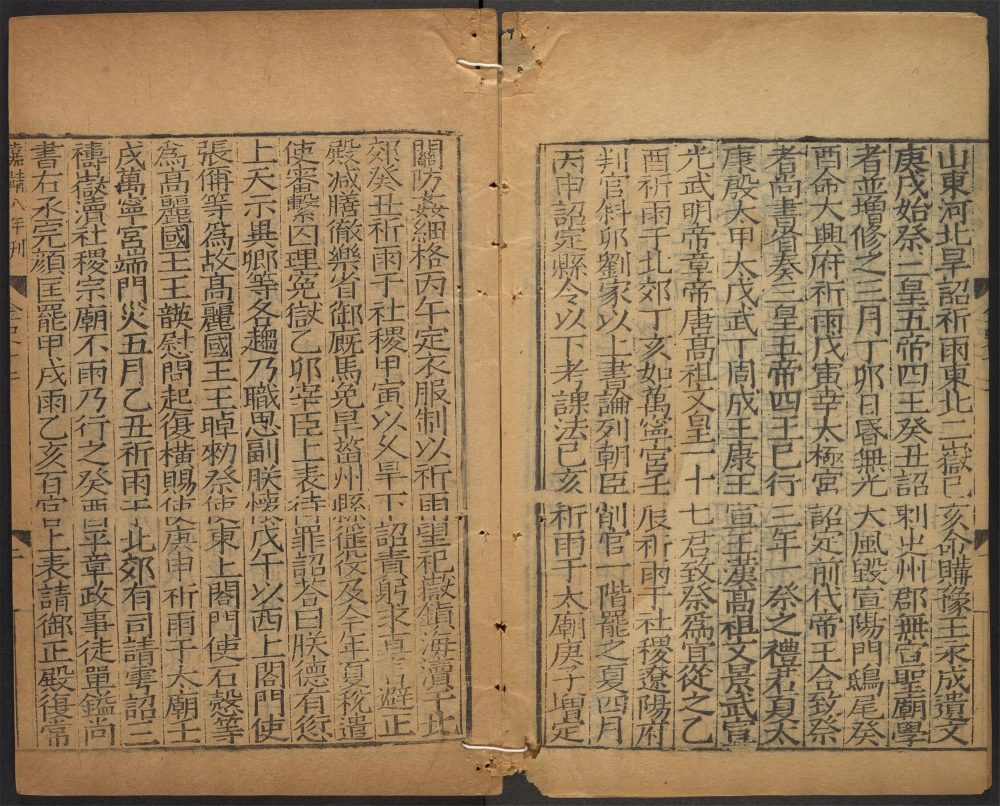 山東河北旱詔祈雨東北二嶽己亥命購豫王永成遺文
庚戌始祭三皇五帝四王癸丑詔刺史州郡無宣聖廟學
者並增修之三月丁卯日昏無光大風毀宣陽門鴟尾癸
酉命大興府祈雨戊寅幸太極宮詔定前代帝王合致祭
者尚書省奏三皇五帝四王已行三年一祭之禮若夏太
康殷太甲太戊武丁周成王康王宣王漢高祖文景武宣
光武明帝章帝唐高祖文皇一十七君致祭為宜從之乙
酉祈雨于北郊丁亥如萬寧宮壬辰祈雨于社稷遼陽府
判官斜卯劉家以上書論列朝臣削官一階罷之夏四月
丙申詔定縣令以下考課法己亥祈雨于太廟庚子增定
關防姦細格丙午定衣服制以祈雨望祀嶽鎮海瀆于北
郊癸丑祈雨于社稷甲寅以久旱下詔責躬求直言避正
殿減膳徹樂省御厩馬免旱菑州縣徭役及今年夏稅遣
使審繫囚理冤獄乙卯宰臣上表待罪詔答曰朕德有愆
上天示異卿等各趨乃職思副朕懷戊午以西上閤門使
張偁等爲故高麗國王王晫勑祭使東上閤門使石愨等
爲高麗國王王韺慰問起復橫賜使庚申祈雨于太廟壬
戌萬寧宮端門災五月乙丑祈雨于北郊有司請雩詔三
禱嶽瀆社稷宗廟不雨乃行之癸酉平章政事徒單鎰尚
書右丞完顏匡罷甲戌雨乙亥百官上表請御正殿復常
嘉靖八年刊
金史十二